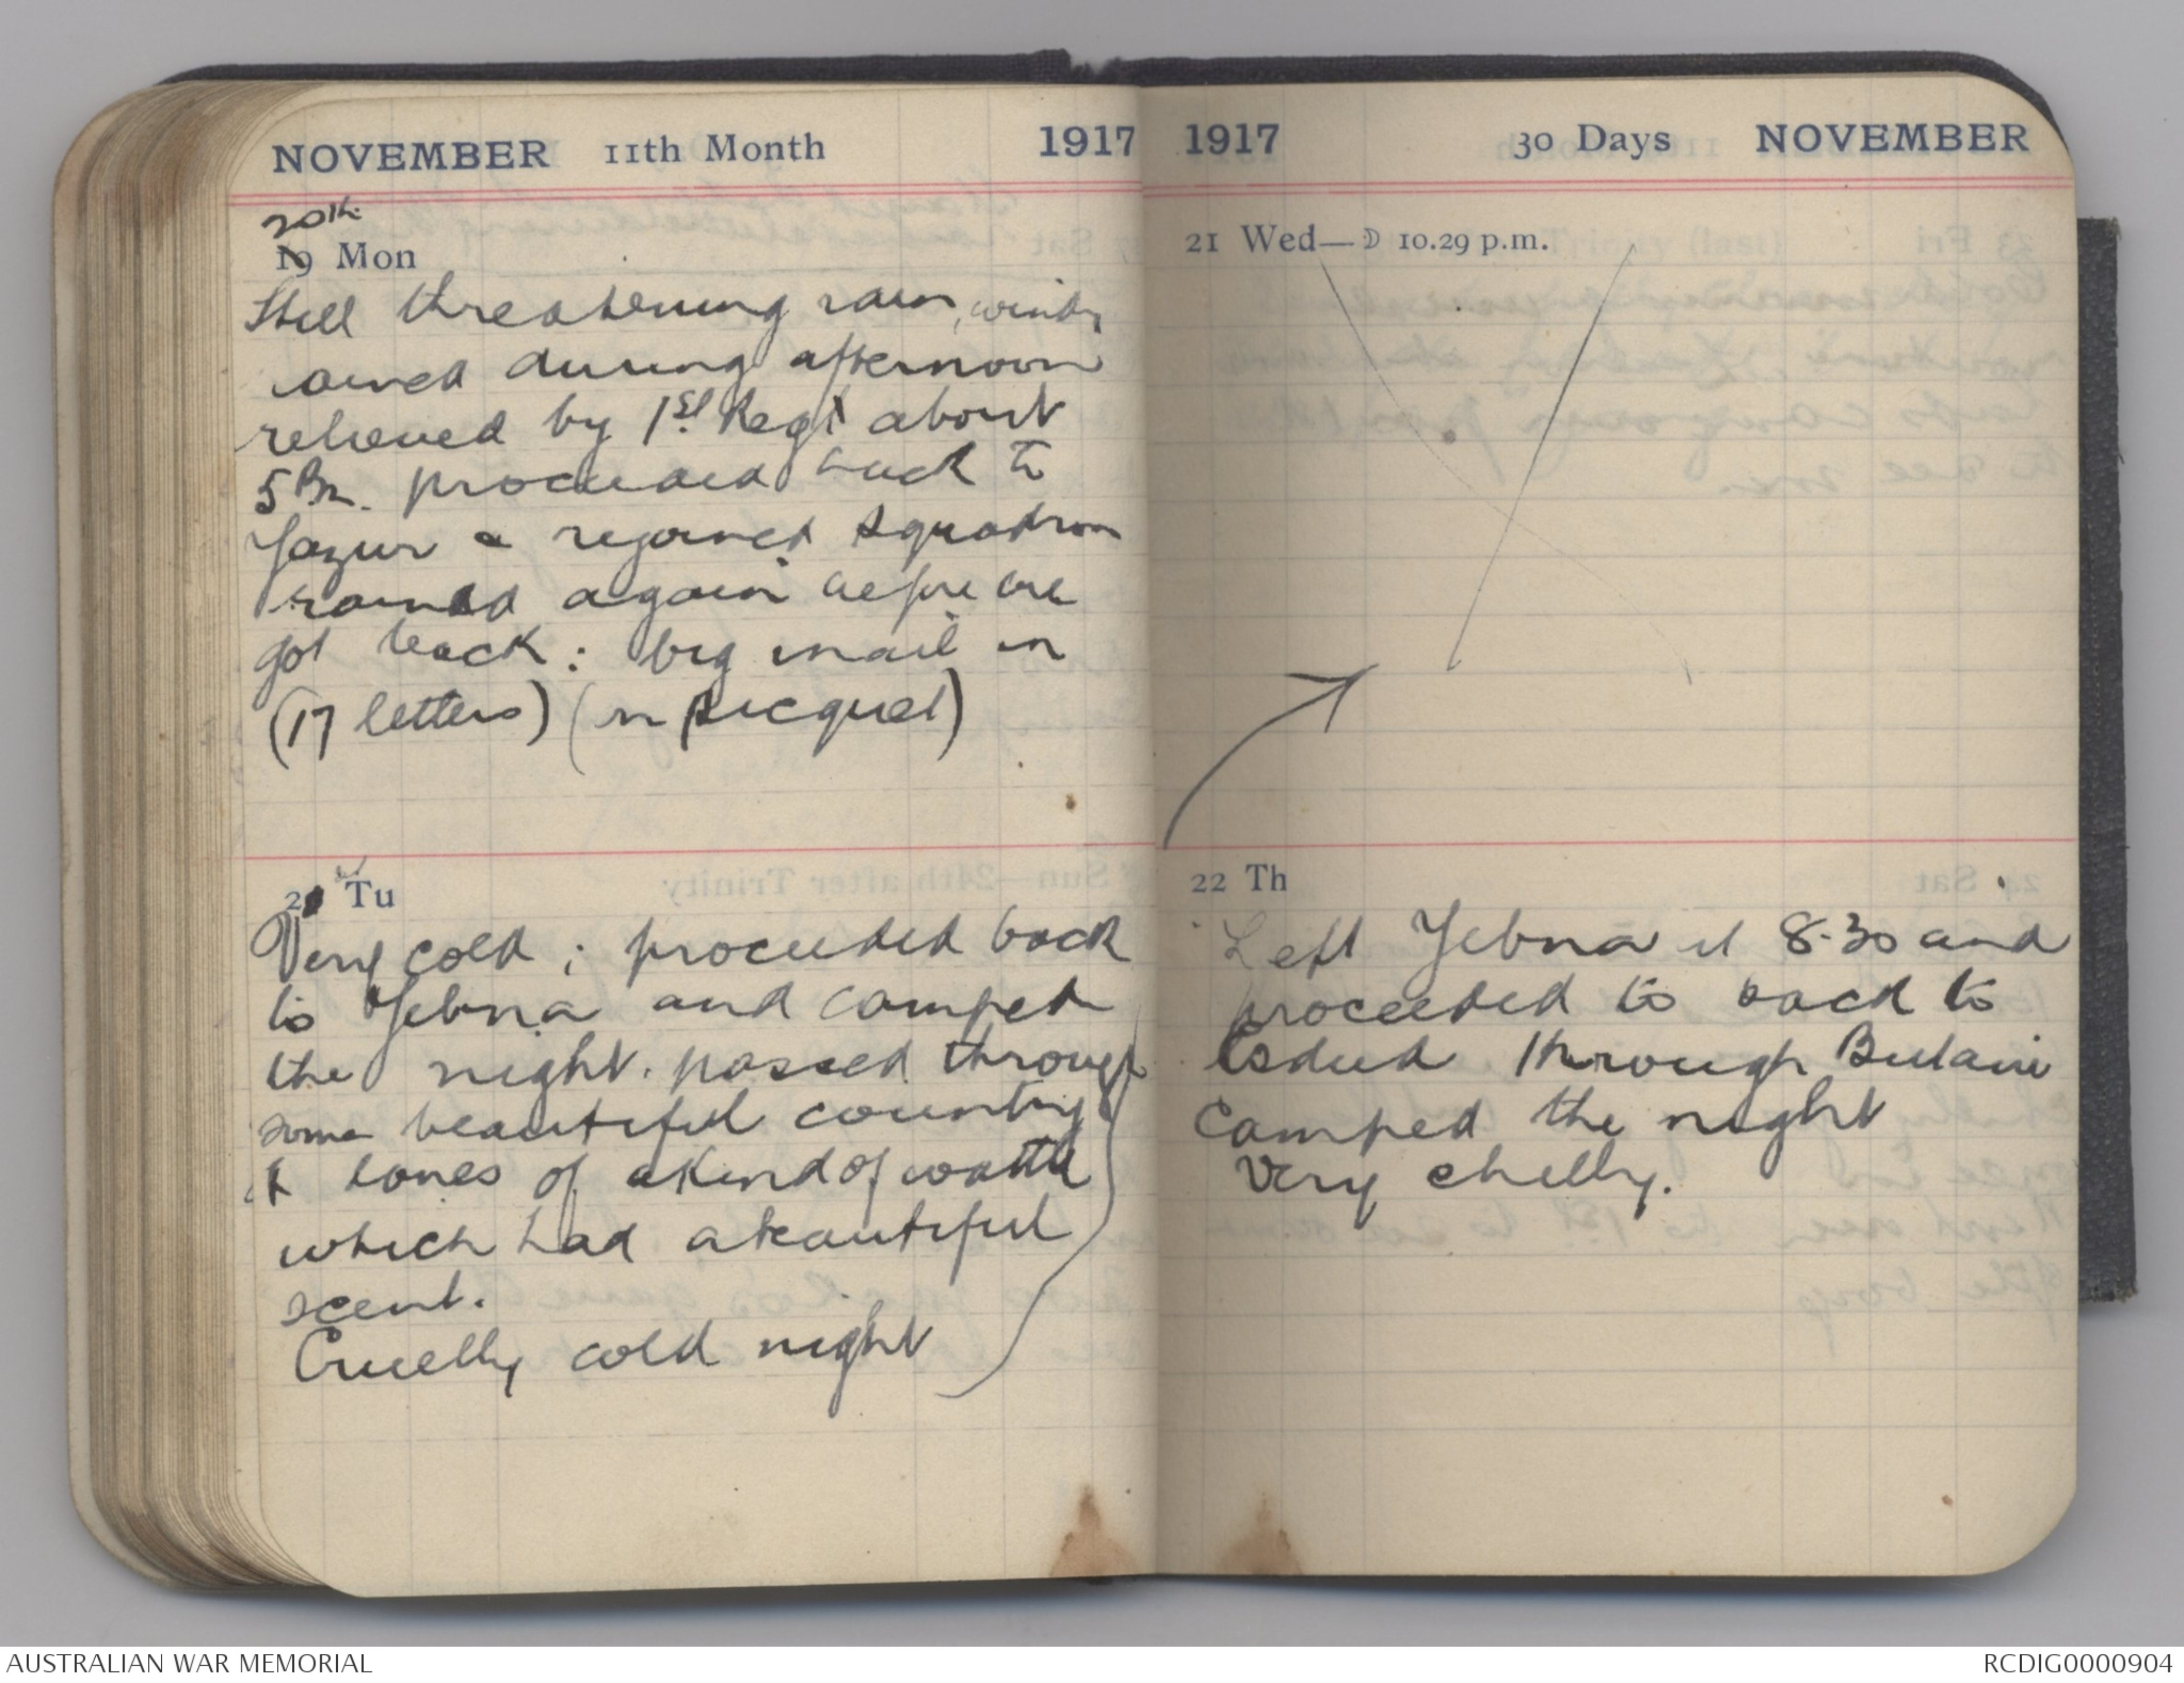 NOVEMBER 11th Month 1917
20th
19 Mon
Still threatening rain, windy
rained during afternoon
relieved by 1st Regt about
5 Pm. proceeded back to
Yazur & rejoined Squadron
rained again before we
got back: big mail in
(17 letters) (on picquet)
21 Tu
Very cold; proceeded back
to Yebna and camped
the night. passed through
some beautiful country
& lanes of a kind of wattle
which had a beautiful
scent.
Cruelly cold night
1917 30 Days NOVEMBER
21 Wed—☽ 10.29 p.m.
22 Th
Left Yebna at 8.30 and
proceeded to back to
Esdud through Butani
Camped the night
Very chilly.
AUSTRALIAN WAR MEMORIAL
RCDIG0000904